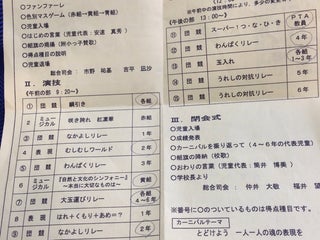 ○ファンファーレ
○色別マスゲーム(赤組→黄組→青組)
○児童入場
○はじめの言葉(児童代表:安達 真秀)
○組旗の掲揚(附小っ子賛歌)
○種目の説明
○児童退場
総合司会:市野 祐基 吉平 凪沙
Ⅱ.演技
(午前の部 9:20~)
① 団競 綱引き 各組
② ミュージカル 咲き誇れ 紅凛華 赤組
③ 団競 なかよしリレー 1年
4 表現 むしむしワールド 2年
⑤ 団競 わんぱくリレー 3年
6 ミュージカル 『自然と文化のシンフォニー』~本当に大切なものは~ 黄組
⑦ 団競 大玉運びリレー 各組4~6年
8 表現 はれ+くもり+あめ=? 1年
⑨ 団競 なかよしリレー 2年
(午後の部 13:00~)
⑪ 団競 スーパー!つ・な・ひ・き PTA教員
⑫ 団競 わんぱくリレー 4年
⑬ 団競 玉入れ 各組1~3年
⑭ 団競 うれしの対抗リレー 5年
⑮ 団競 うれしの対抗リレー 6年
Ⅲ.閉会式
○児童入場
○成績発表
○カーニバルを振り返って(4~6年の代表児童)
○組旗の降納(校歌)
○おわりの言葉(児童代表:筒井 博長)
○学校長より
総合司会:仲井 大敬 福井
※番号に○のついているものは得点種目です。
カーニバルテーマ
とどけよう 一人一人の魂の表現を